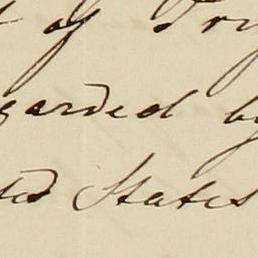 of Try
garded by
ted States